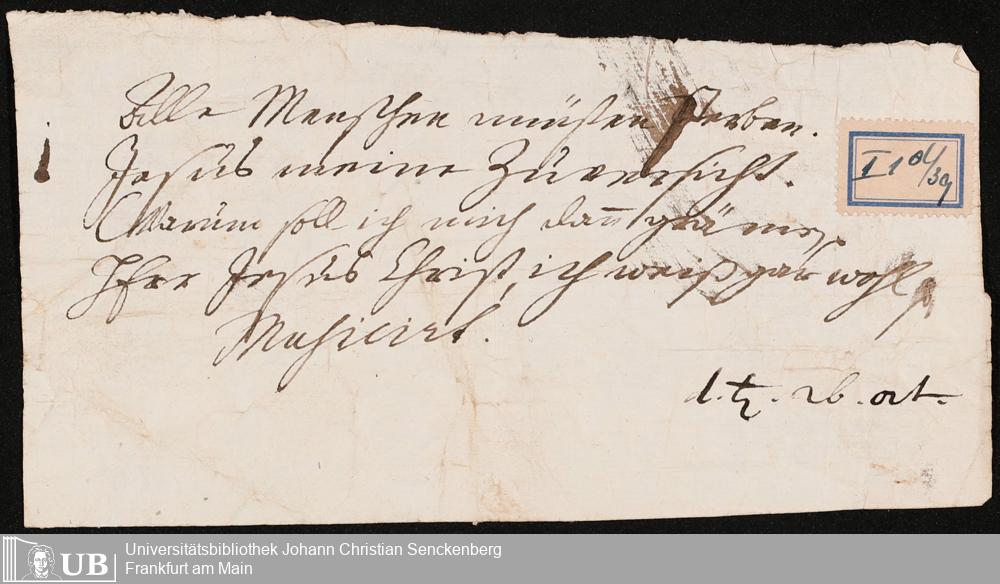 Alle Menschen müßen sterben.
Jesus meine Zuversicht.
Warum soll ich mich dañ grämen,
Herr Jesus Christ, ich weiß gar wohl
Musicirt.
d. ♃. 26. oct.
I 1 04/39
UB
Universitätsbibliothek Johann Christian Senckenberg
Frankfurt am Main